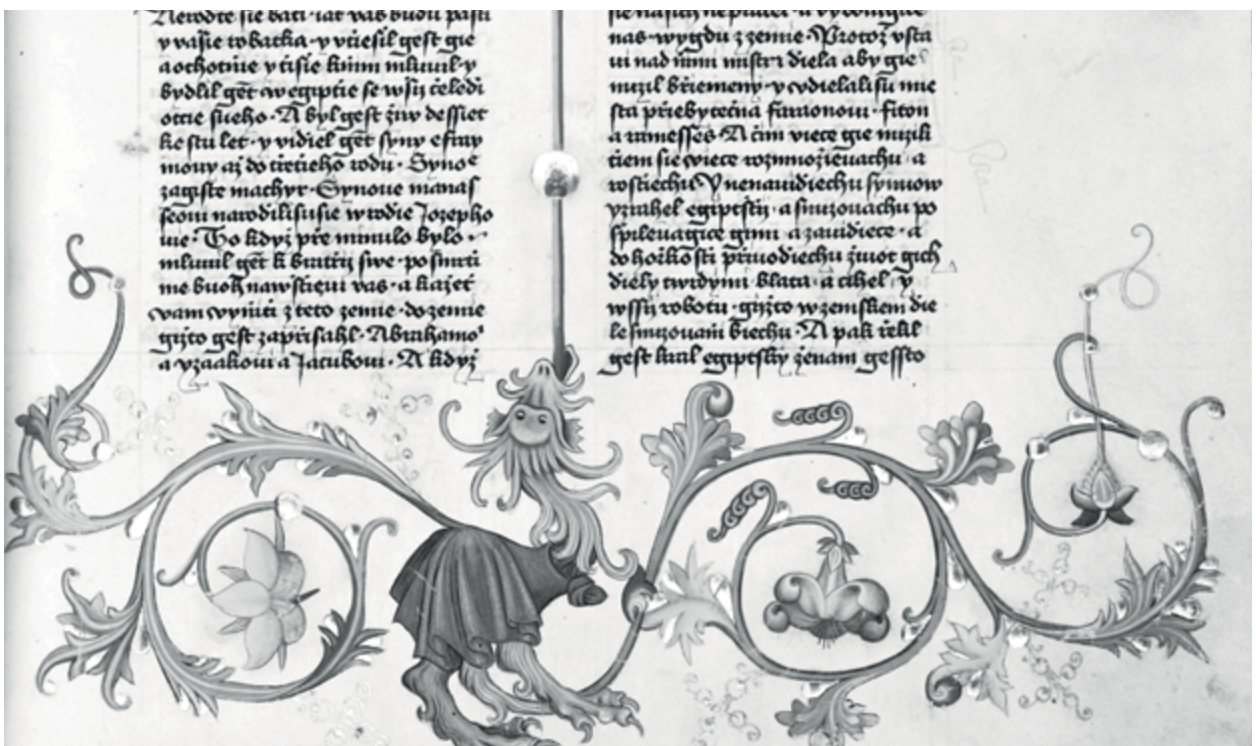 Nerodte sie bati · iat vas budu pasti
y vassie robatka · y vtiesil gest gie
a ochotnie y tisie knim mluuil · y
bydlil gest w egiptie se wsij čeledi
otcie sweho · A byl gest žiw dessiet
ke stu let · y vidiel gēt syny efray
mowy až do třetieho rodu · Synoe
zagiste machyr · Synoue manas
seoui narodili su sie w rodie Jozepho
wie · To když přeminulo bylo ·
mluuil gēt k bratřij swe · po smrti
me buoh nawštiewi vas · a každ
wam vyniti z teto zemie · do zemie
gižto gest zapřisahl · Abrahamo
a yzaakoui a Jacubowi · A když
nas · wygdu z zemie Protož vsta
ui nad nimi mistri diela aby gie
muzil břiemeny · y vdielali su mie
sta přiebytečna faraonowi · fiton
a ramesses · A čim viece gie muzili
tiem sie viece rozmnožievachu · a
rostiechu Y nenauidiechu synuow
yzrahel egiptštij · a smuzowachu po
spilevagice gimi · a zauidiece · a
do hořkosti přiuodiechu žiuot gich
diely twrdymi · blata · a cihel · y
wssij robotu · gižto w zemskem die
le smuzowani biechu · A pak řekl
gest kral egiptsky ženam gessto